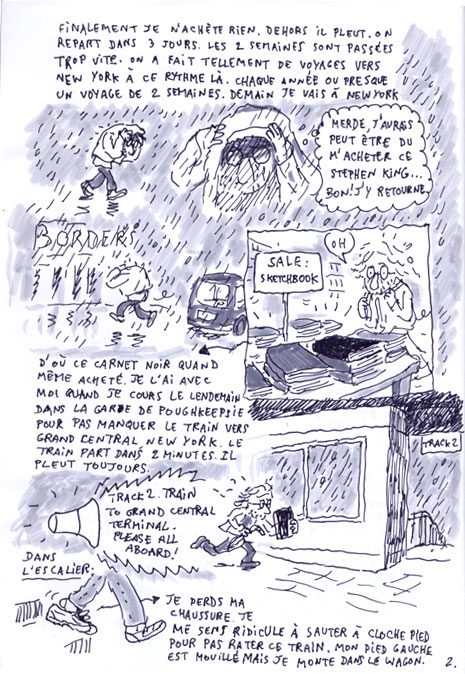 FINALEMENT JE N'ACHÈTE RIEN. DEHORS IL PLEUT. ON
REPART DANS 3 JOURS. LES 2 SEMAINES SONT PASSÉES
TROP VITE. ON A FAIT TELLEMENT DE VOYAGES VERS
NEW YORK À CE RYTHME LÀ. CHAQUE ANNÉE OU PRESQUE
UN VOYAGE DE 2 SEMAINES. DEMAIN JE VAIS À NEW YORK
MERDE, J'AURAIS
PEUT ÊTRE DU
M'ACHETER CE
STEPHEN KING...
BON! J'Y RETOURNE.
BORDERS
SALE:
SKETCHBOOK
OH
D'OÙ CE CARNET NOIR QUAND
MÊME ACHETÉ. JE L'AI AVEC
MOI QUAND JE COURS LE LENDEMAIN
DANS LA GARDE DE POUGHKEEPSIE
POUR PAS MANQUER LE TRAIN VERS
GRAND CENTRAL NEW YORK. LE
TRAIN PART DANS 2 MINUTES. IL
PLEUT TOUJOURS.
TRACK 2
TRACK 2. TRAIN
TO GRAND CENTRAL
TERMINAL.
PLEASE ALL
ABOARD!
DANS
L'ESCALIER.
JE PERDS MA
CHAUSSURE. JE
ME SENS RIDICULE À SAUTER À CLOCHE PIED
POUR PAS RATER CE TRAIN. MON PIED GAUCHE
EST MOUILLÉ MAIS JE MONTE DANS LE WAGON.
2.